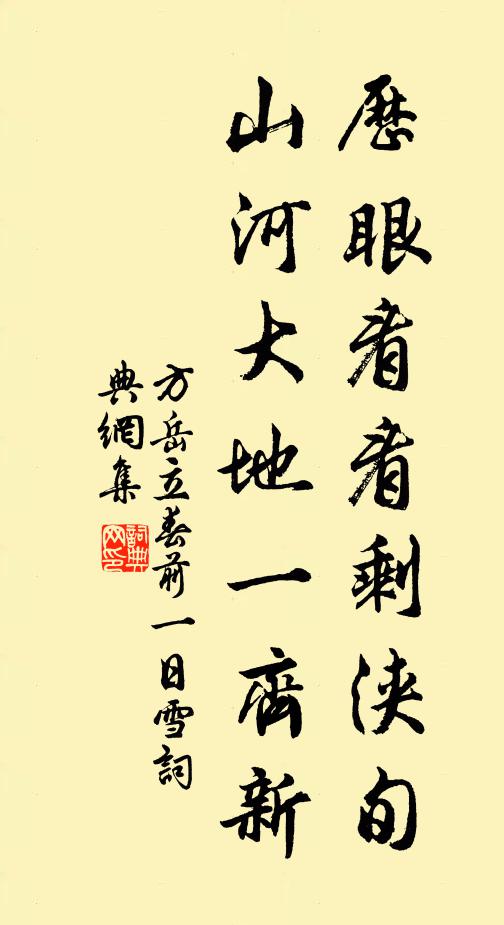 歷眼看看剩浹旬
山河大地一齊新
方岳立春前一日雪詞
典網集
詞典
网印